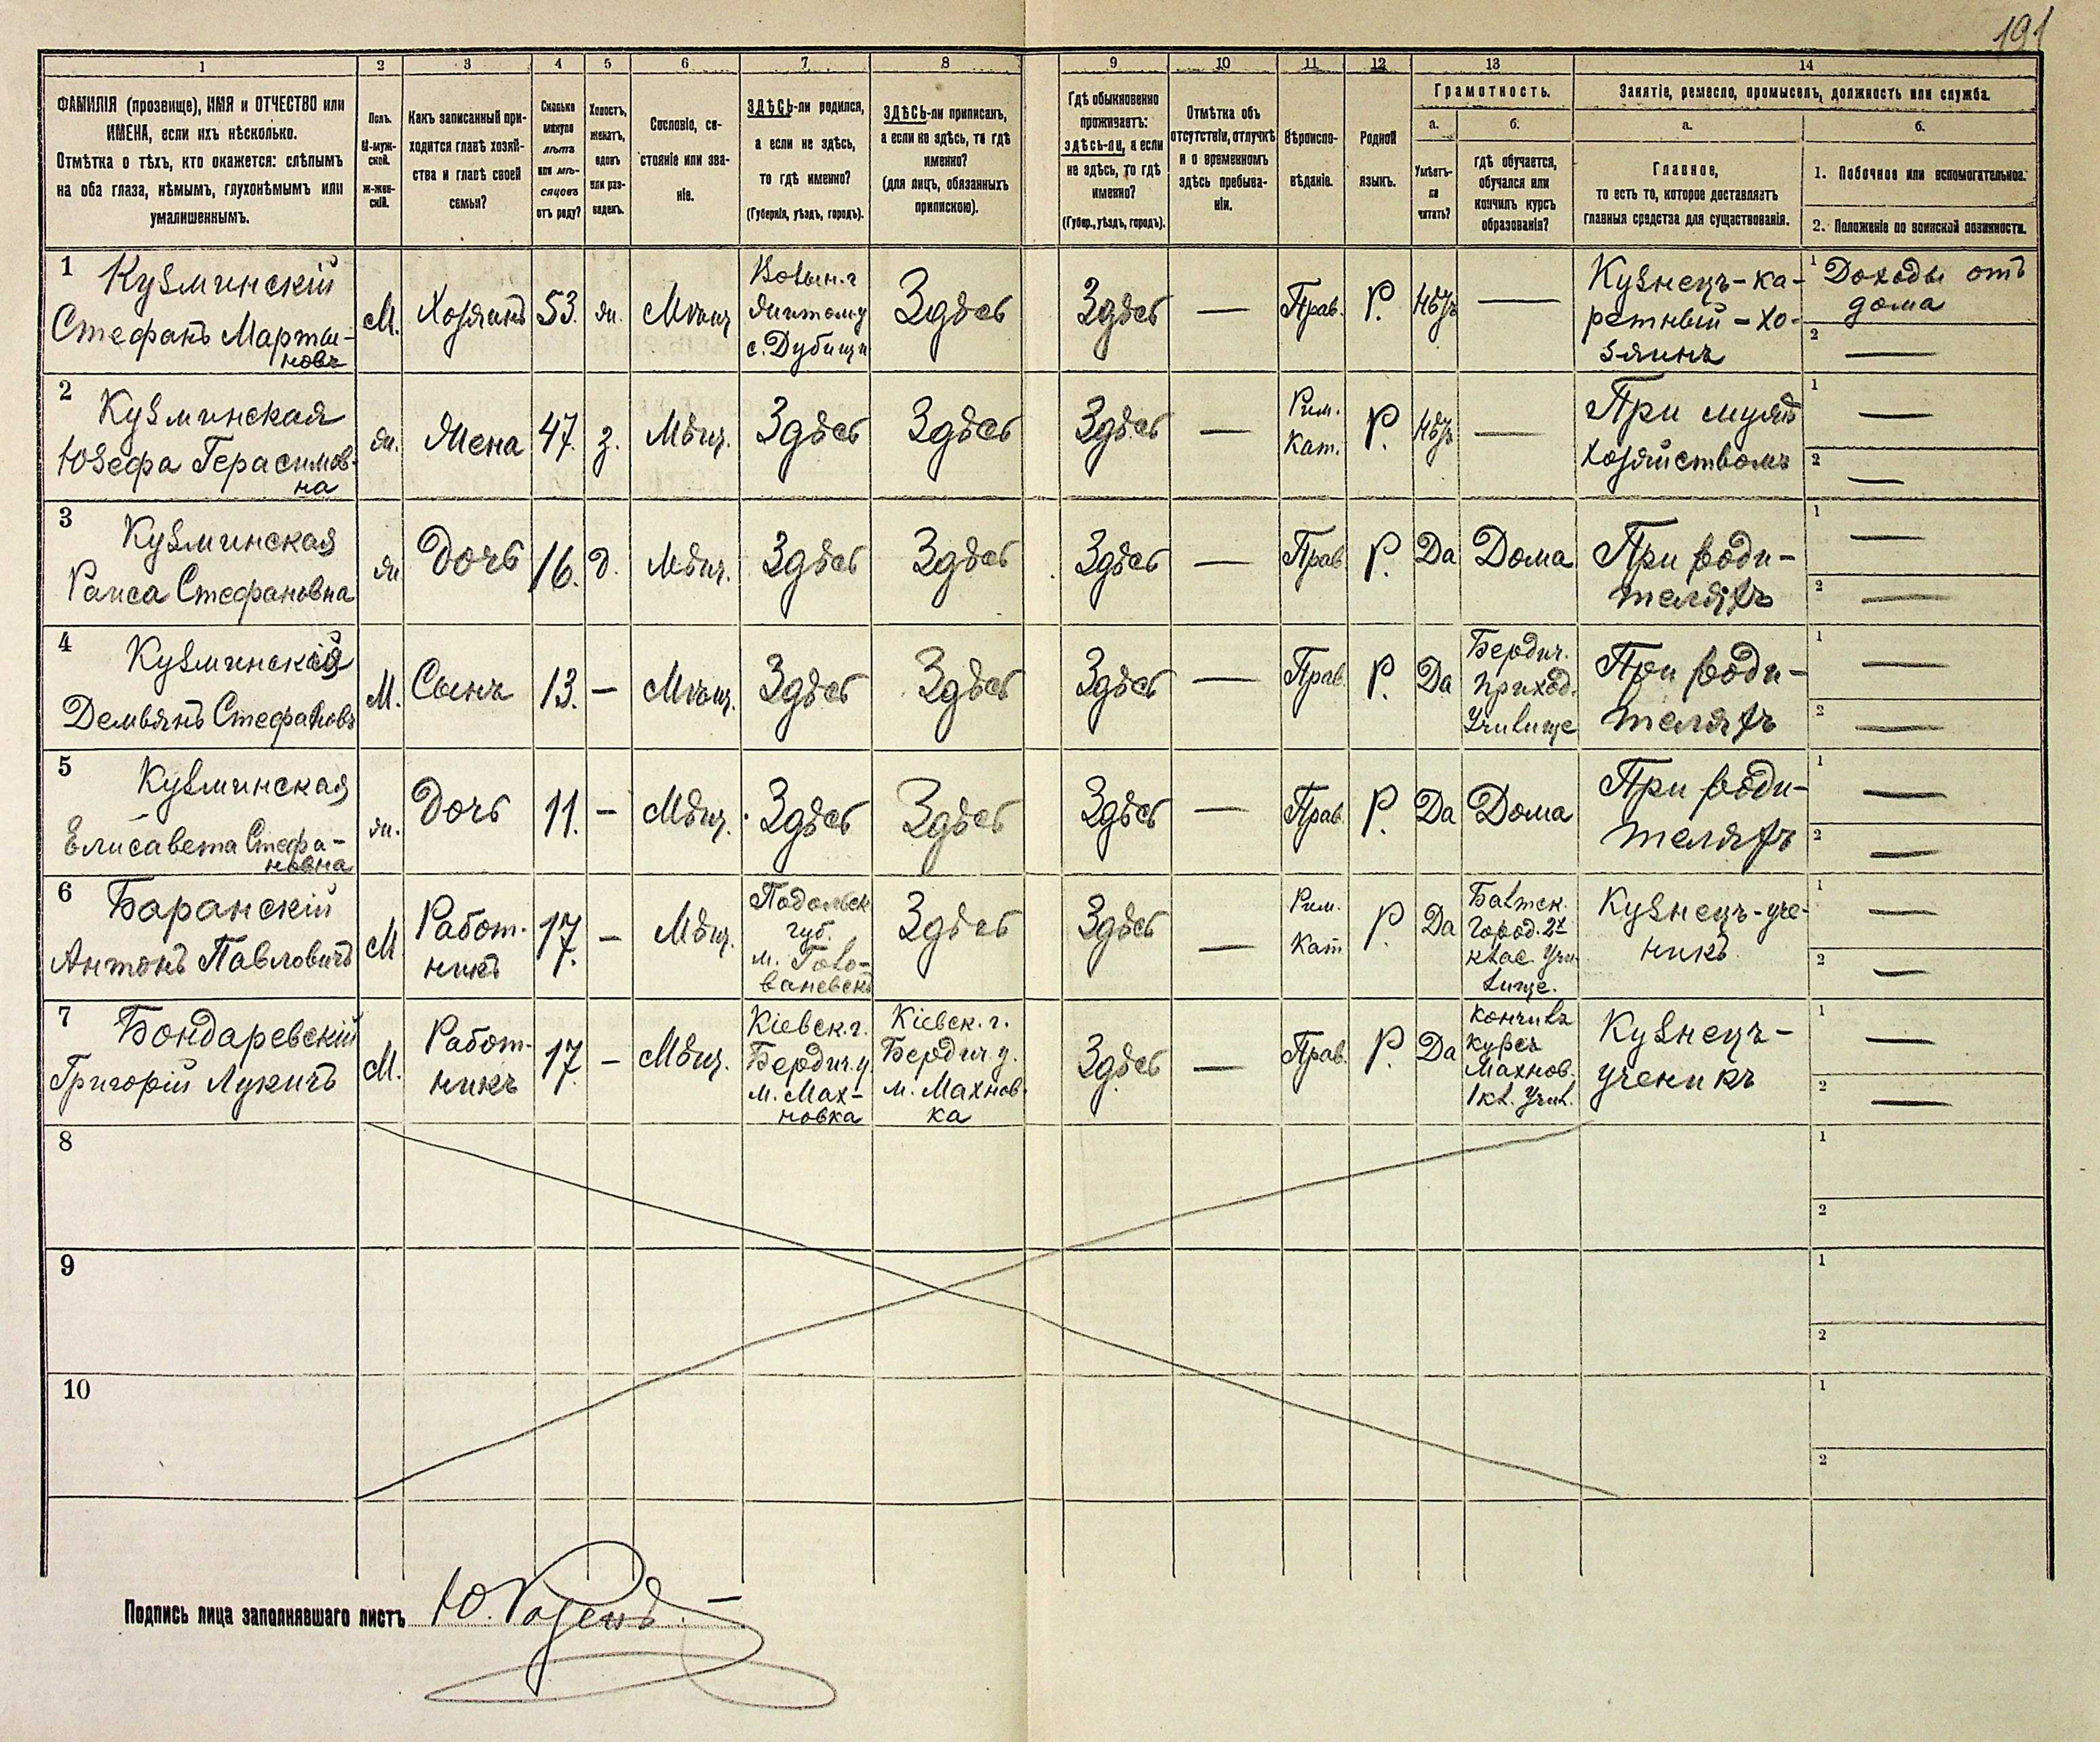 191
1 2 3 4 5 6 7 8 9 10 11 12 13 14
ФАМИЛІЯ (прозвище), ИМЯ и ОТЧЕСТВО или
ИМЕНА, если ихъ нѣсколько.
Отмѣтка о тѣхъ, кто окажется: слѣпымъ
на оба глаза, нѣмымъ, глухонѣмымъ или
умалишеннымъ.
Полъ.
М-муж-
ской.
ж-жен-
скій.
Какъ записанный при-
ходится главѣ хозяй-
ства и главѣ своей
семьи?
Сколько
минуло
лѣтъ
или мѣ-
сяцовъ
отъ роду?
Холостъ,
женатъ,
вдовъ
или раз-
веденъ.
Сословіе, со-
стояніе или зва-
ніе.
ЗДѢСЬ-ли родился,
а если не здѣсь,
то гдѣ именно?
(Губернія, уѣздъ, городъ).
ЗДѢСЬ-ли приписанъ,
а если не здѣсь, то гдѣ
именно?
(для лицъ, обязанныхъ
припискою).
Гдѣ обыкновенно
проживаетъ:
здѣсь-ли, а если
не здѣсь, то гдѣ
именно?
(Губер., уѣздъ, городъ).
Отмѣтка объ
отсутствіи, отлучкѣ
и о временномъ
здѣсь пребыва-
ніи.
Вѣроиспо-
вѣданіе.
Родной
языкъ.
Грамотность.
а.
Умѣетъ-
ли
читать?
б.
гдѣ обучается,
обучался или
кончилъ курсъ
образованія?
Занятіе, ремесло, промыселъ, должность или служба.
а.
Главное,
то есть то, которое доставляетъ
главныя средства для существованія.
б.
1. Побочное или вспомогательное.
2. Положеніе по воинской повинности.
1
Кузминскій
Стефанъ Марты-
новъ
М.
Хозяинъ
53.
ж.
Мѣщ
Волын. г
Житом у
с. Дубищи
Здѣсь
Здѣсь
—
Прав.
Р.
Нѣтъ
—
Кузнецъ-ка-
ретный-хо-
зяинъ
1 Доходы отъ
дома
2 —
2
Кузминская
Юзефа Герасимов-
на
ж.
Жена
47.
з.
Мѣщ.
Здѣсь
Здѣсь
Здѣсь
—
Рим.
Кат.
Р.
Нѣтъ
—
При мужѣ
хозяйствомъ
1 —
2 —
3
Кузминская
Раиса Стефановна
ж
Дочь
16.
д.
Мѣщ.
Здѣсь
Здѣсь
Здѣсь
—
Прав
Р.
Да
Дома
При роди-
теляхъ
1 —
2 —
4
Кузминскій
Демьянъ Стефановъ
М.
Сынъ
13.
—
Мѣщ.
Здѣсь
Здѣсь
Здѣсь
—
Прав.
Р.
Да
Бердич.
приход.
Училище
При роди-
теляхъ
1 —
2 —
5
Кузминская
Елисавета Стефа-
новна
ж.
Дочь
11.
—
Мѣщ.
Здѣсь
Здѣсь
Здѣсь
—
Прав.
Р.
Да
Дома
При роди-
теляхъ
1 —
2 —
6
Баранскій
Антонъ Павловичъ
М
Работ-
никъ
17.
—
Мѣщ.
Подольск
губ.
м. Голо-
ваневскъ
Здѣсь
Здѣсь
—
Рим.
Кат
Р.
Да
Балтск.
Город. 2х
клас. Учи-
лище.
Кузнецъ-уче-
никъ
1 —
2 —
7
Бондаревскій
Григорій Лукичъ
М.
Работ-
никъ
17.
—
Мѣщ.
Кіевск. г.
Бердич. у.
м. Мах-
новка
Кіевск. г.
Бердич. у.
м. Махнов-
ка
Здѣсь
—
Прав.
Р.
Да
кончилъ
курсъ
Махнов.
1 кл. Учил.
Кузнецъ-
ученикъ
1 —
2 —
8
1
2
9
1
2
10
1
2
Подпись лица заполнявшаго листъ